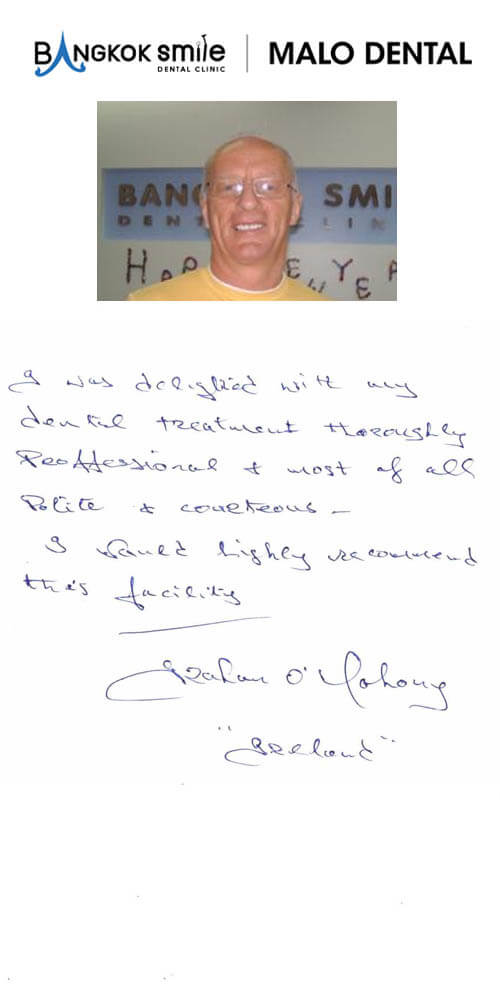 BANGKOK smile | MALO DENTAL
DENTAL CLINIC
BANG SMI
DENT LIN
HAP EW YEA
I was delighted with my
dental treatment thoroughly
Proffessional & most of all
Polite & courteous –
I would highly recommend
this facility
Graham O'Mahony
"Ireland"